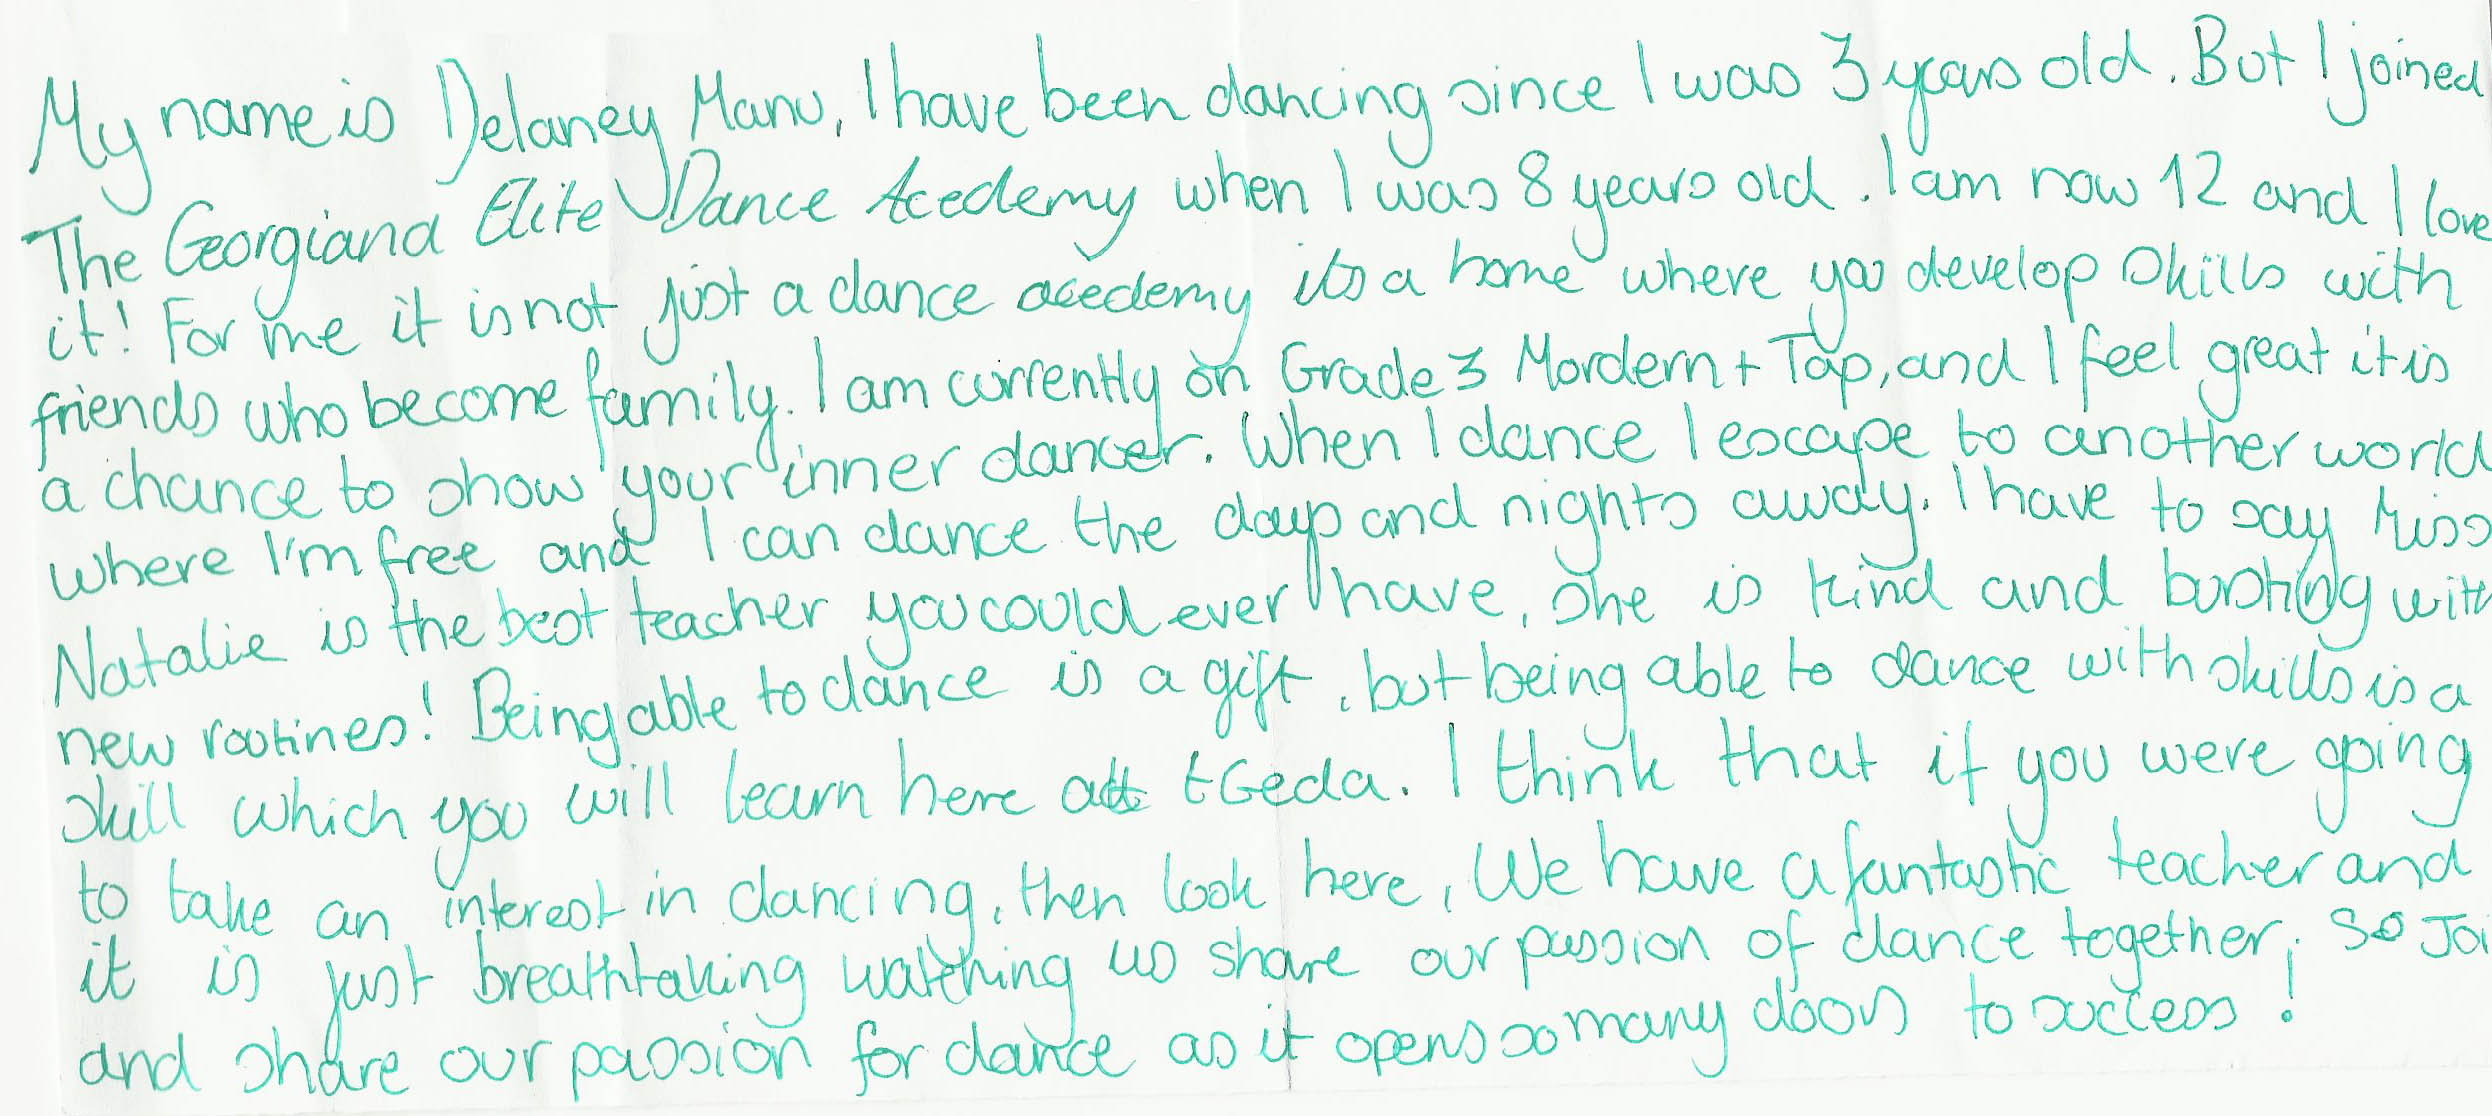 My name is Delaney Manu, I have been dancing since I was 3 years old. But I joined
The Georgiand Elite Dance Acedemy when I was 8 years old. I am now 12 and I love
it! For me it is not just a dance acedemy its a home where you develop skills with
friends who become family. I am currently on Grade 3 Mordern + Tap, and I feel great it is
a chance to show your inner dancer. When I dance I escape to another world
where I'm free and I can dance the days and nights away. I have to say Miss
Natalie is the best teacher you could ever have, she is kind and busting with
new routines! Being able to dance is a gift, but being able to dance with skills is a
skill which you will learn here at tGeda. I think that if you were going
to take an interest in dancing, then look here, We have a fantastic teacher and
it is just breathtaking watching us share our passion of dance together, So Joi
and share our passion for dance as it opens so many doors to success!